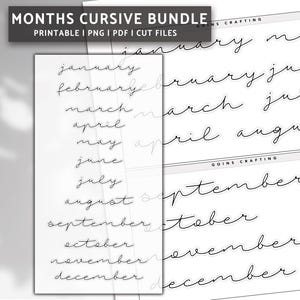 MONTHS CURSIVE BUNDLE
PRINTABLE | PNG | PDF | CUT FILES
january
february
march
april
may
june
july
august
september
october
november
december
GOINS CRAFTING
january
february
march june
april august
GOINS CRAFTING
september
october
november
december